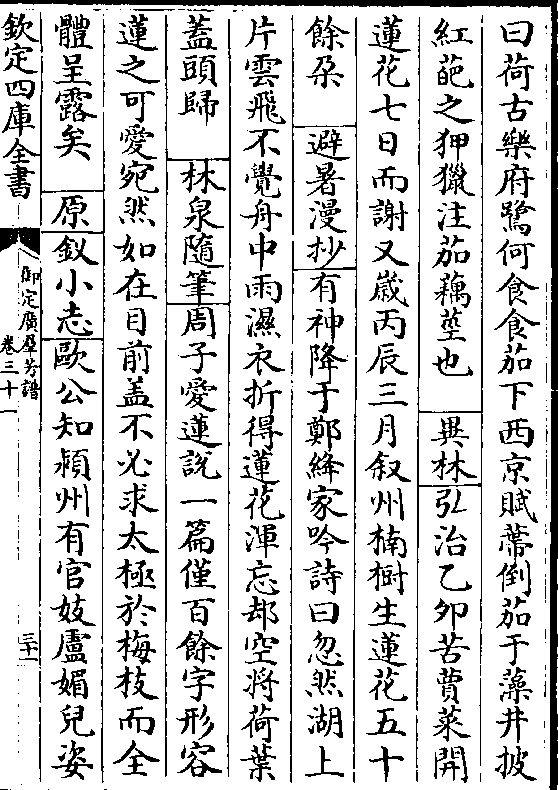 曰荷古樂府鷺何食食茄下西京賦蔕倒茄于藻井披
紅葩之狎獵注茄藕莖也 異林弘治乙夘苦蕒菜開
蓮花七日而謝又歲丙辰三月叙州楠樹生蓮花五十
餘朶 避暑漫抄有神降于鄭絳家吟詩曰忽然湖上
片雲飛不覺舟中雨濕衣折得蓮花渾忘却空将荷葉
蓋頭歸 林泉隨筆周子愛蓮說一篇僅百餘字形容
蓮之可愛宛然如在目前盖不必求太極於梅枝而全
體呈露矣 原釵小志歐公知潁州有官妓盧媚兒姿
欽定四庫全書 御定廣羣芳譜 卷三十一 三十一